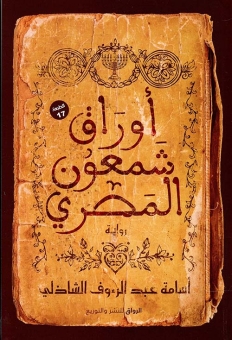 أوراق
الطبعة
17
شمعون
المصري
رواية
أسامة عبد الرءوف الشاذلي
الرواق للنشر والتوزيع